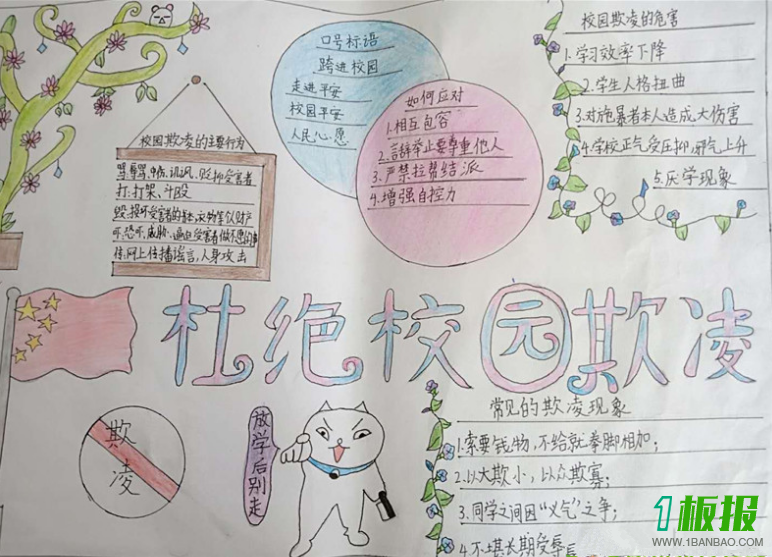 口号标语
跨进校园
走进平安
校园平安
人民心愿
如何应对
1.相互包容
2.言辞举止要尊重他人
3.严禁拉帮结派
4.增强自控力
校园欺凌的危害
1.学习效率下降
2.学生人格扭曲
3.对施暴者本人造成大伤害
4.学校正气受压抑,邪气上升
5.厌学现象
校园欺凌的主要行为
骂,辱骂,中伤,讥讽,贬抑受害者
打:打架、斗殴
毁:损坏受害者的书本,衣物等仪财产
吓,恐吓,威胁、逼迫受害者做不愿的事
传,网上传播谣言,人身攻击
杜绝校园欺凌
欺凌
放学后别走
常见的欺凌现象
1.索要钱物,不给就拳脚相加;
2.以大欺小,以众欺寡;
3.同学之间因“义气”之争;
4.不堪长期受辱
1板报
WWW.1BANBAO.COM